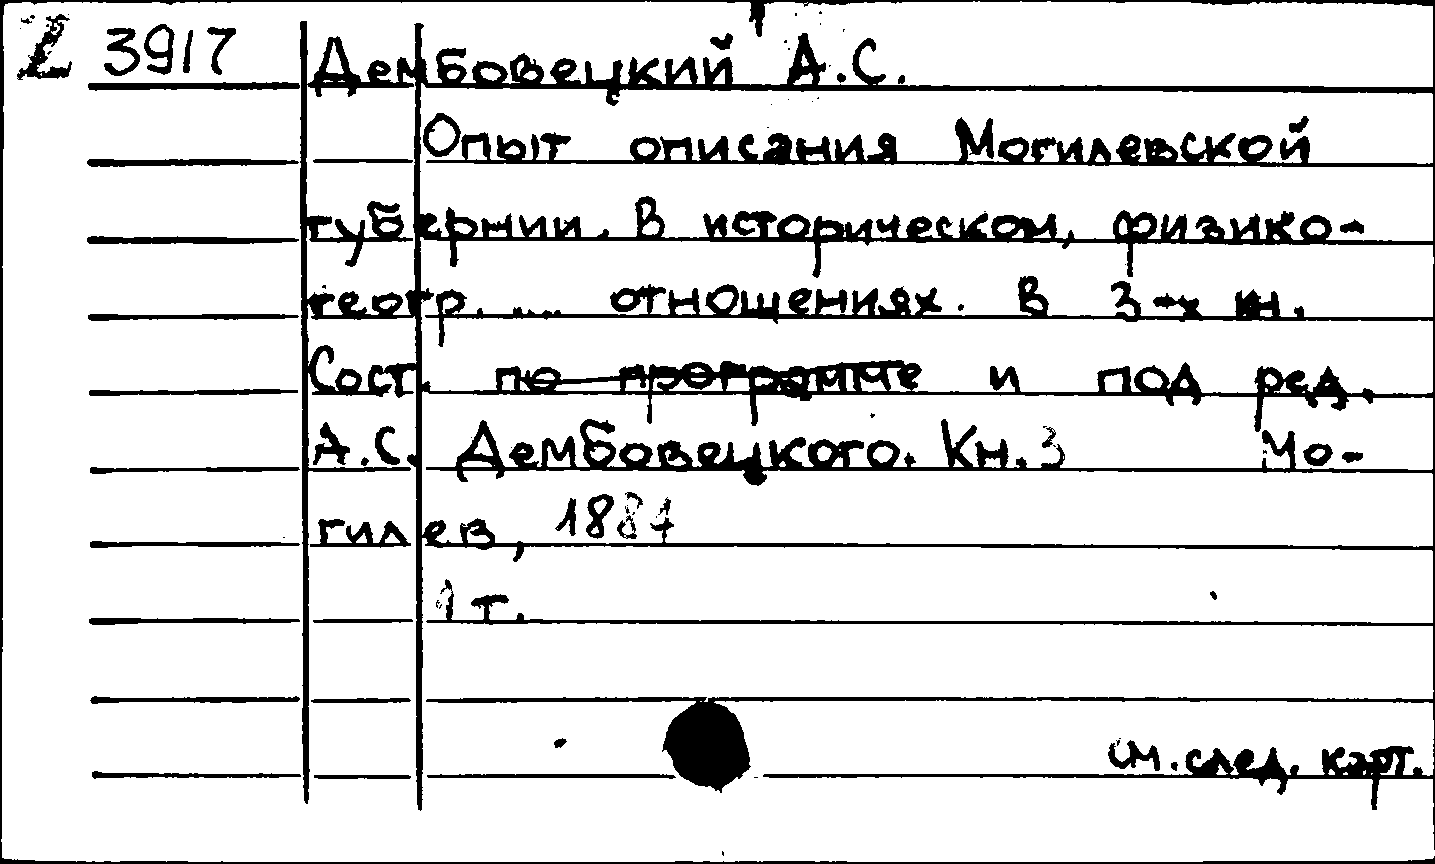 Z 3917 Дембовецкий А.С.
Опыт описания Могилевской
губернии. В историческом, физико-
геогр. .... отношениях. В 3-х кн.
Сост. по программе и под ред.
А.С. Дембовецкого. Кн. 3 Мо-
гилев, 1884
1 т.
см. след. карт.